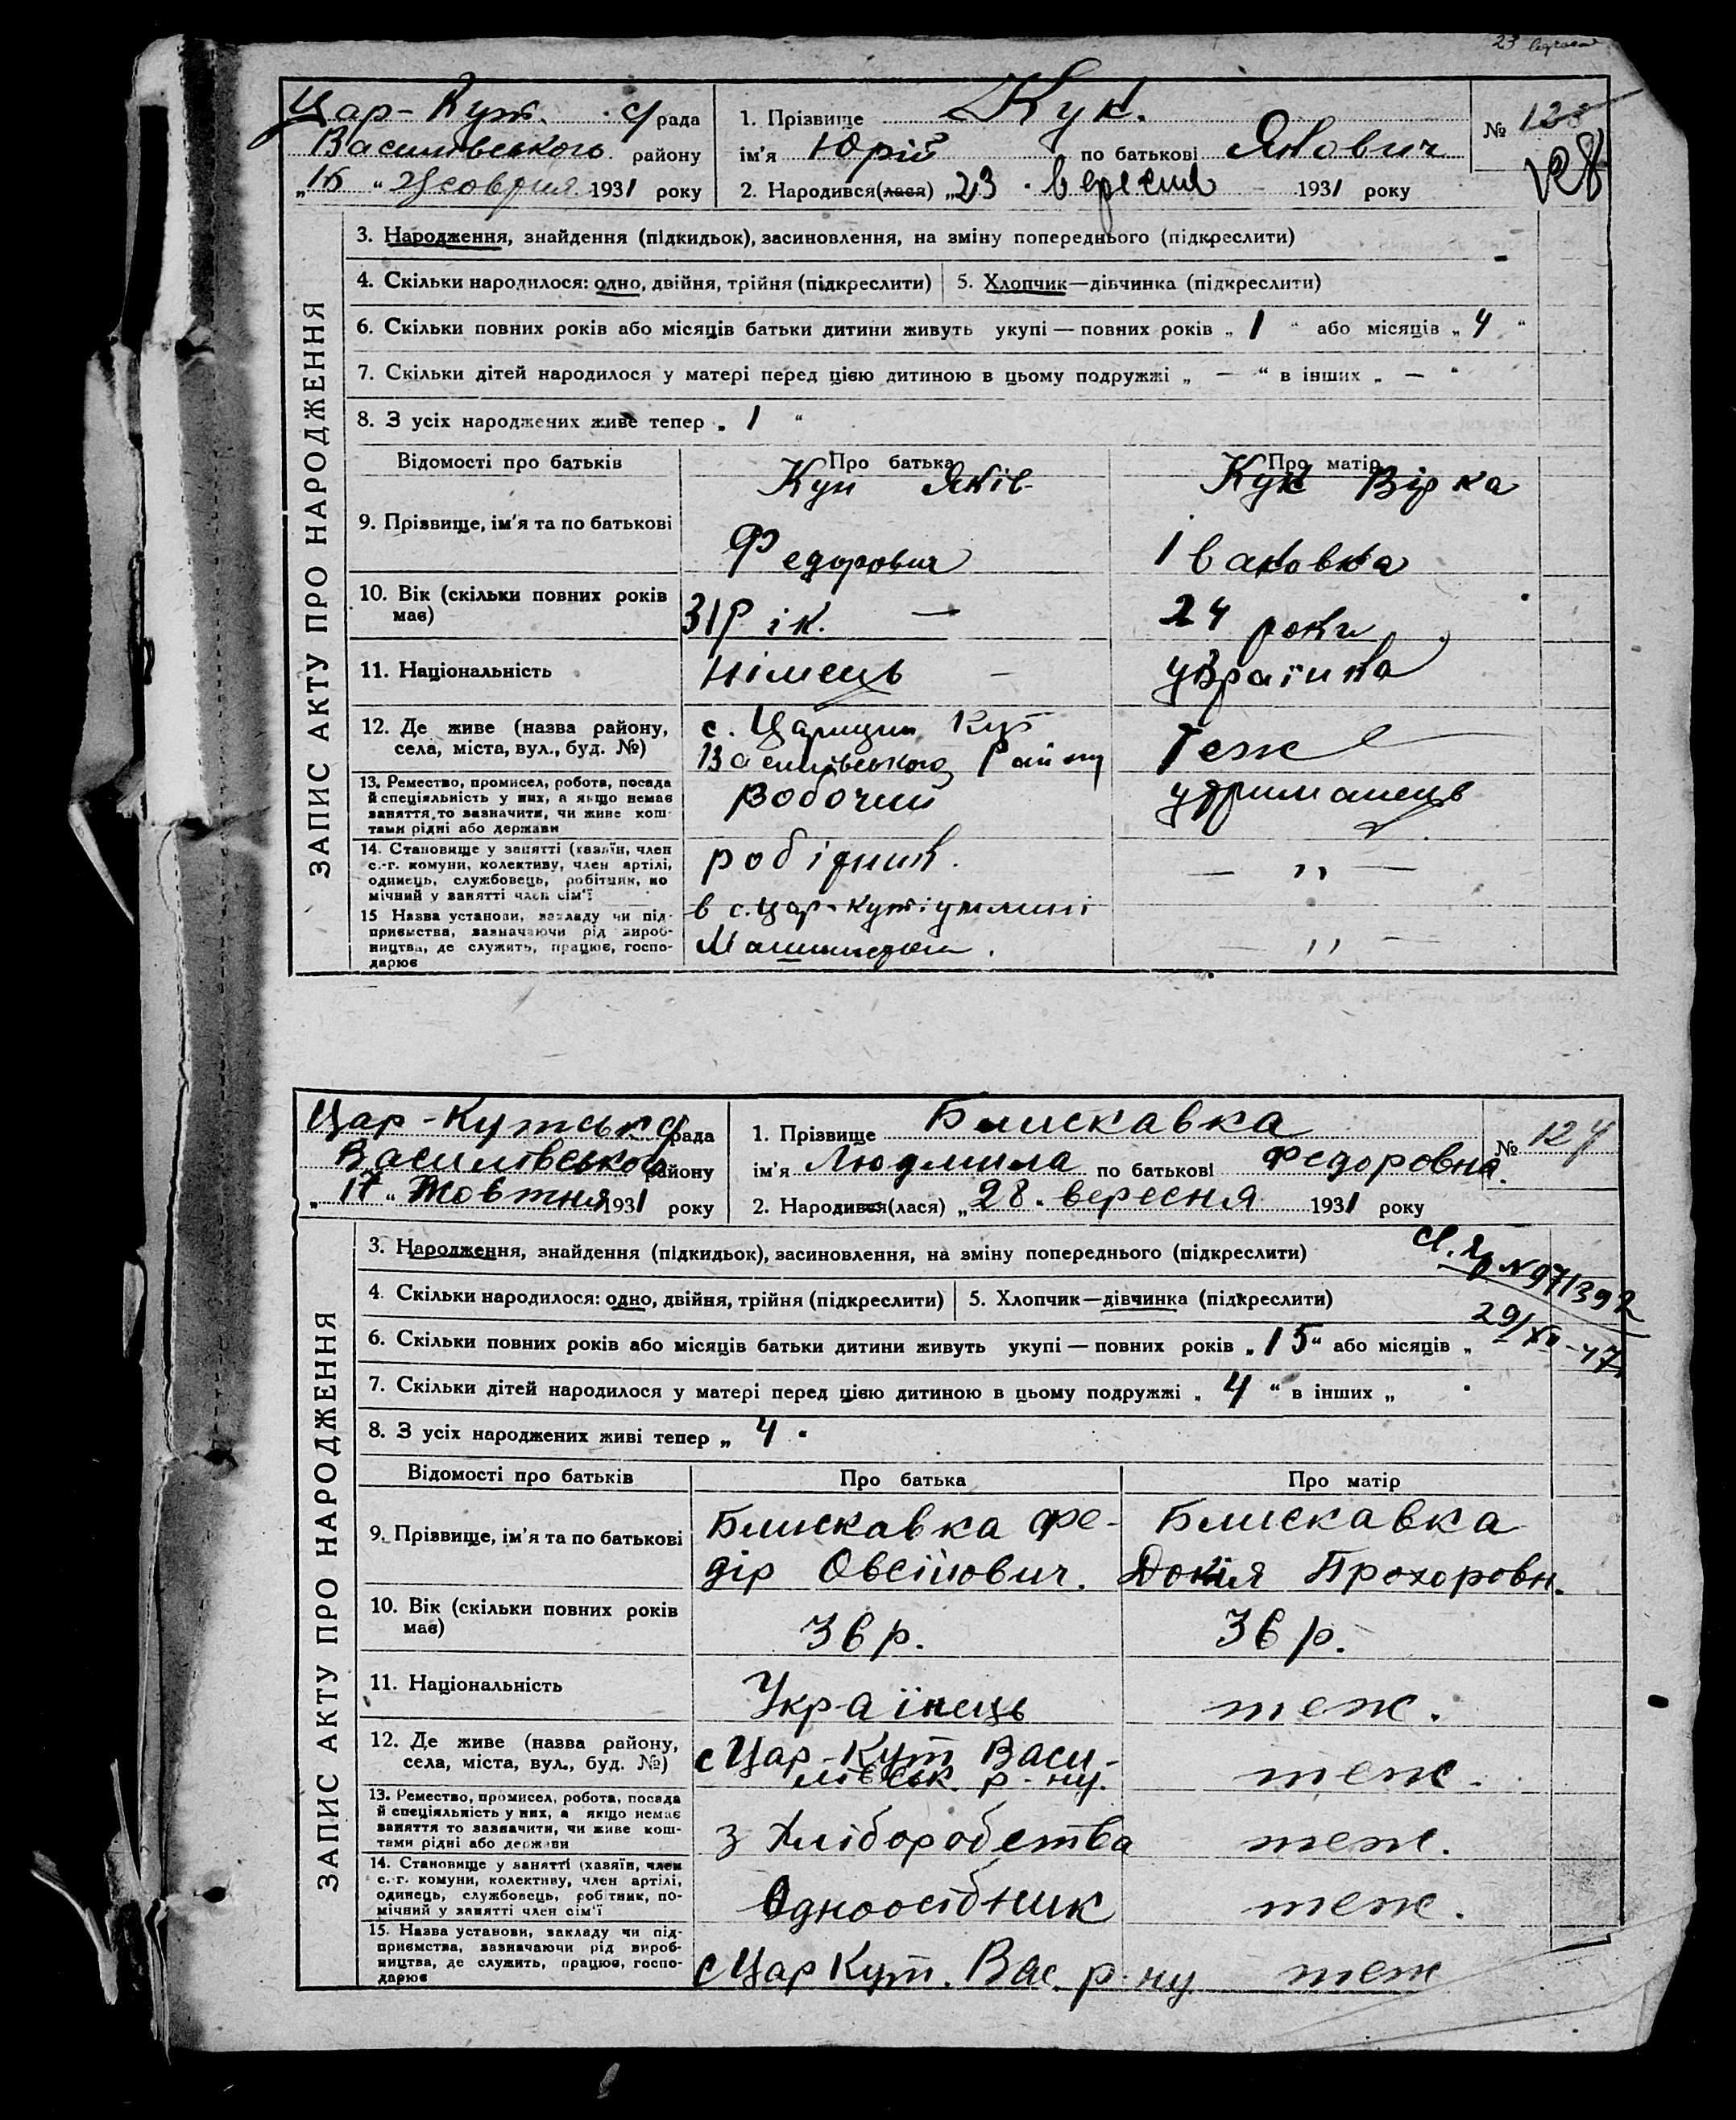 23 вересня
Цар-Кут. с/рада
Василівського району
„16 “ Жовтня 1931 року
1. Прізвище Кук.
ім'я Юрій по батькові Якович
2. Народився(лася) „23 “ вересня 1931 року
№ 123
128
ЗАПИС АКТУ ПРО НАРОДЖЕННЯ
3. Народження, знайдення (підкидьок), засиновлення, на зміну попереднього (підкреслити)
4. Скільки народилося: одно, двійня, трійня (підкреслити) 5. Хлопчик—дівчинка (підкреслити)
6. Скільки повних років або місяців батьки дитини живуть укупі — повних років „ 1 “ або місяців „ 4 “
7. Скільки дітей народилося у матері перед цією дитиною в цьому подружжі „ — “ в інших „ — “
8. З усіх народжених живе тепер „ 1 “
Відомості про батьків Про батька Про матір
9. Прізвище, ім'я та по батькові
Кук Яків Кук Вірка
Федорович Івановна
10. Вік (скільки повних років
має)
31 рік. — 24 роки
11. Національність німець — українка
12. Де живе (назва району,
села, міста, вул., буд. №)
с. Царицин Кут
Василівського Району Теж
13. Ремество, промисел, робота, посада
й спеціяльність у них, а якщо немає
заняття, то зазначити, чи живе кош-
тами рідні або держави
Робочий утриманець
14. Становище у занятті (хазяїн, член
с.-г. комуни, колективу, член артілі,
одинець, службовець, робітник, по
мічний у занятті член сім'ї
робітник. — „ —
15 Назва установи, закладу чи під-
приємства, зазначаючи рід вироб-
ництва, де служить, працює, госпо-
дарює
в с. Цар-Куті у млині
Машиністом. — „ —
Цар-Кутськ с/рада
Василівського району
„ 17 “ Жовтня 1931 року
1. Прізвище Блискавка
ім'я Людмила по батькові Федоровна.
2. Народився(лася) „28 “ вересня 1931 року
№ 124
ЗАПИС АКТУ ПРО НАРОДЖЕННЯ
3. Народження, знайдення (підкидьок), засиновлення, на зміну попереднього (підкреслити)
№971392
29/XII-47
4. Скільки народилося: одно, двійня, трійня (підкреслити) 5. Хлопчик—дівчинка (підкреслити)
6. Скільки повних років або місяців батьки дитини живуть укупі — повних років „ 15 “ або місяців „
7. Скільки дітей народилося у матері перед цією дитиною в цьому подружжі „ 4 “ в інших „ “
8. З усіх народжених живі тепер „ 4 “
Відомості про батьків Про батька Про матір
9. Прізвище, ім'я та по батькові
Блискавка Фе- Блискавка
дір Овсійович. Докія Прохоровн.
10. Вік (скільки повних років
має)
36 р. 36 р.
11. Національність Українець теж.
12. Де живе (назва району,
села, міста, вул., буд. №)
с Цар-Кут Васи-
лівськ. р-ну. теж.
13. Ремество, промисел, робота, посада
й спеціяльність у них, а якщо немає
заняття то зазначити, чи живе кош-
тами рідні або держави
з хліборобства теж.
14. Становище у занятті (хазяїн, член
с.-г. комуни, колективу, член артілі,
одинець, службовець, робітник, по-
мічний у занятті член сім'ї
Одноосібник теж.
15. Назва установи, закладу чи під-
приємства, зазначаючи рід вироб-
ництва, де служить, працює, госпо-
дарює
с Цар Кут. Вас. р-ну теж